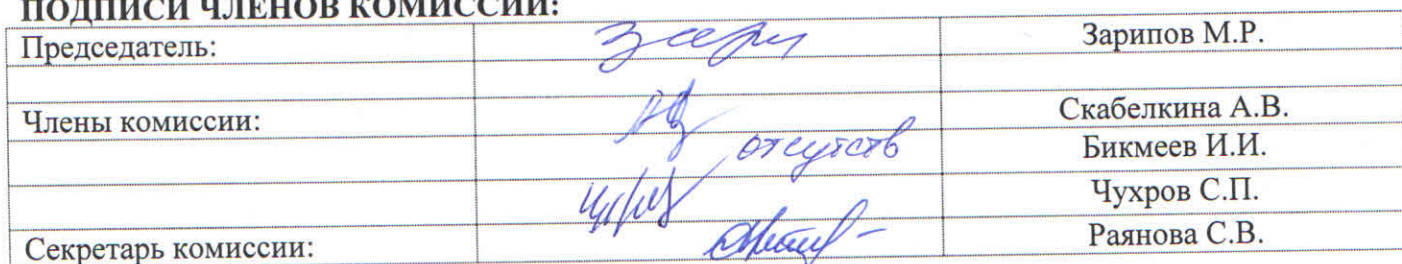 ПОДПИСИ ЧЛЕНОВ КОМИССИИ:
Председатель: Зарипов М.Р.
Члены комиссии: Скабелкина А.В.
отсутств Бикмеев И.И.
Чухров С.П.
Секретарь комиссии: Раянова С.В.